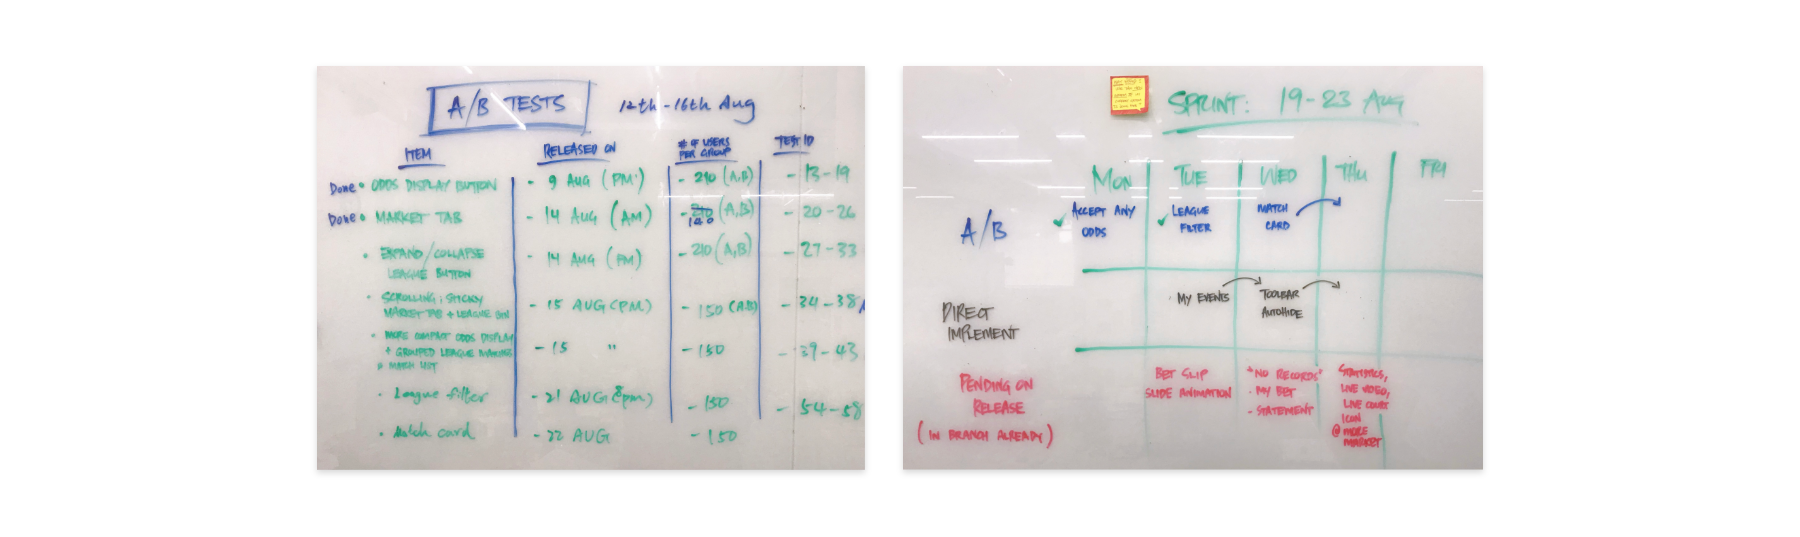 A/B TESTS 12th-16th Aug
ITEM RELEASED ON # of USERS PER GROUP TEST ID
Done • ODDS DISPLAY BUTTON - 9 AUG (PM) - 210 (A,B) - 13-19
Done • MARKET TAB - 14 AUG (AM) - 210 140 (A,B) - 20-26
• EXPAND/COLLAPSE - 14 AUG (PM) - 210 (A,B) - 27-33
LEAGUE BUTTON
• SCROLLING: STICKY - 15 AUG (PM) - 150 (A,B) - 34-38
MARKET TAB + LEAGUE BTN
• MORE COMPACT ODDS DISPLAY - 15 " - 150 - 39-43
+ GROUPED LEAGUE MARKETS
• League filter - 21 AUG (8pm) - 150 - 54-58
• Match card - 22 AUG - 150
SPRINT: 19-23 Aug
MON TUE WED THU FRI
A/B
ACCEPT ANY
ODDS
LEAGUE
FILTER
MATCH
CARD
DIRECT
IMPLEMENT
MY EVENTS
TOOLBAR
AUTOHIDE
PENDING ON
RELEASE
(IN BRANCH ALREADY)
BET SLIP
SLIDE ANIMATION
"NO RECORDS"
- MY BET
- STATEMENT
STATISTICS,
LIVE VIDEO,
LIVE COURT
ICON
@ MORE
MARKET